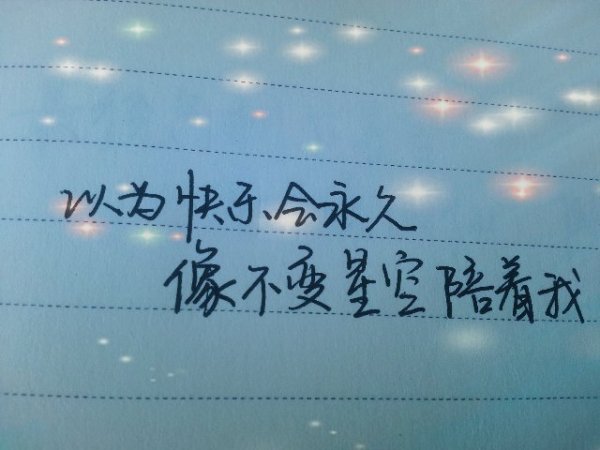 以为快乐会永久
像不变星空陪着我